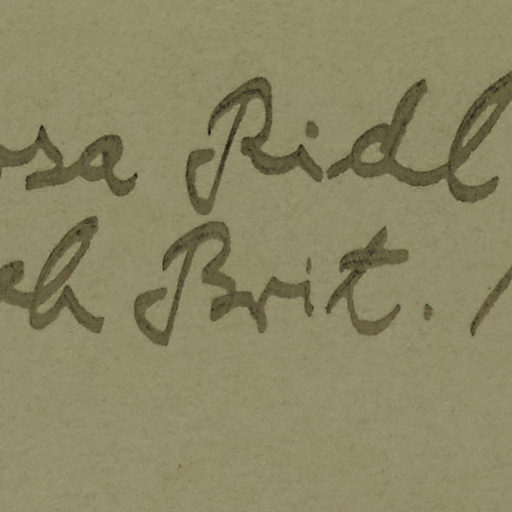 osa Ridl
ch Brit.